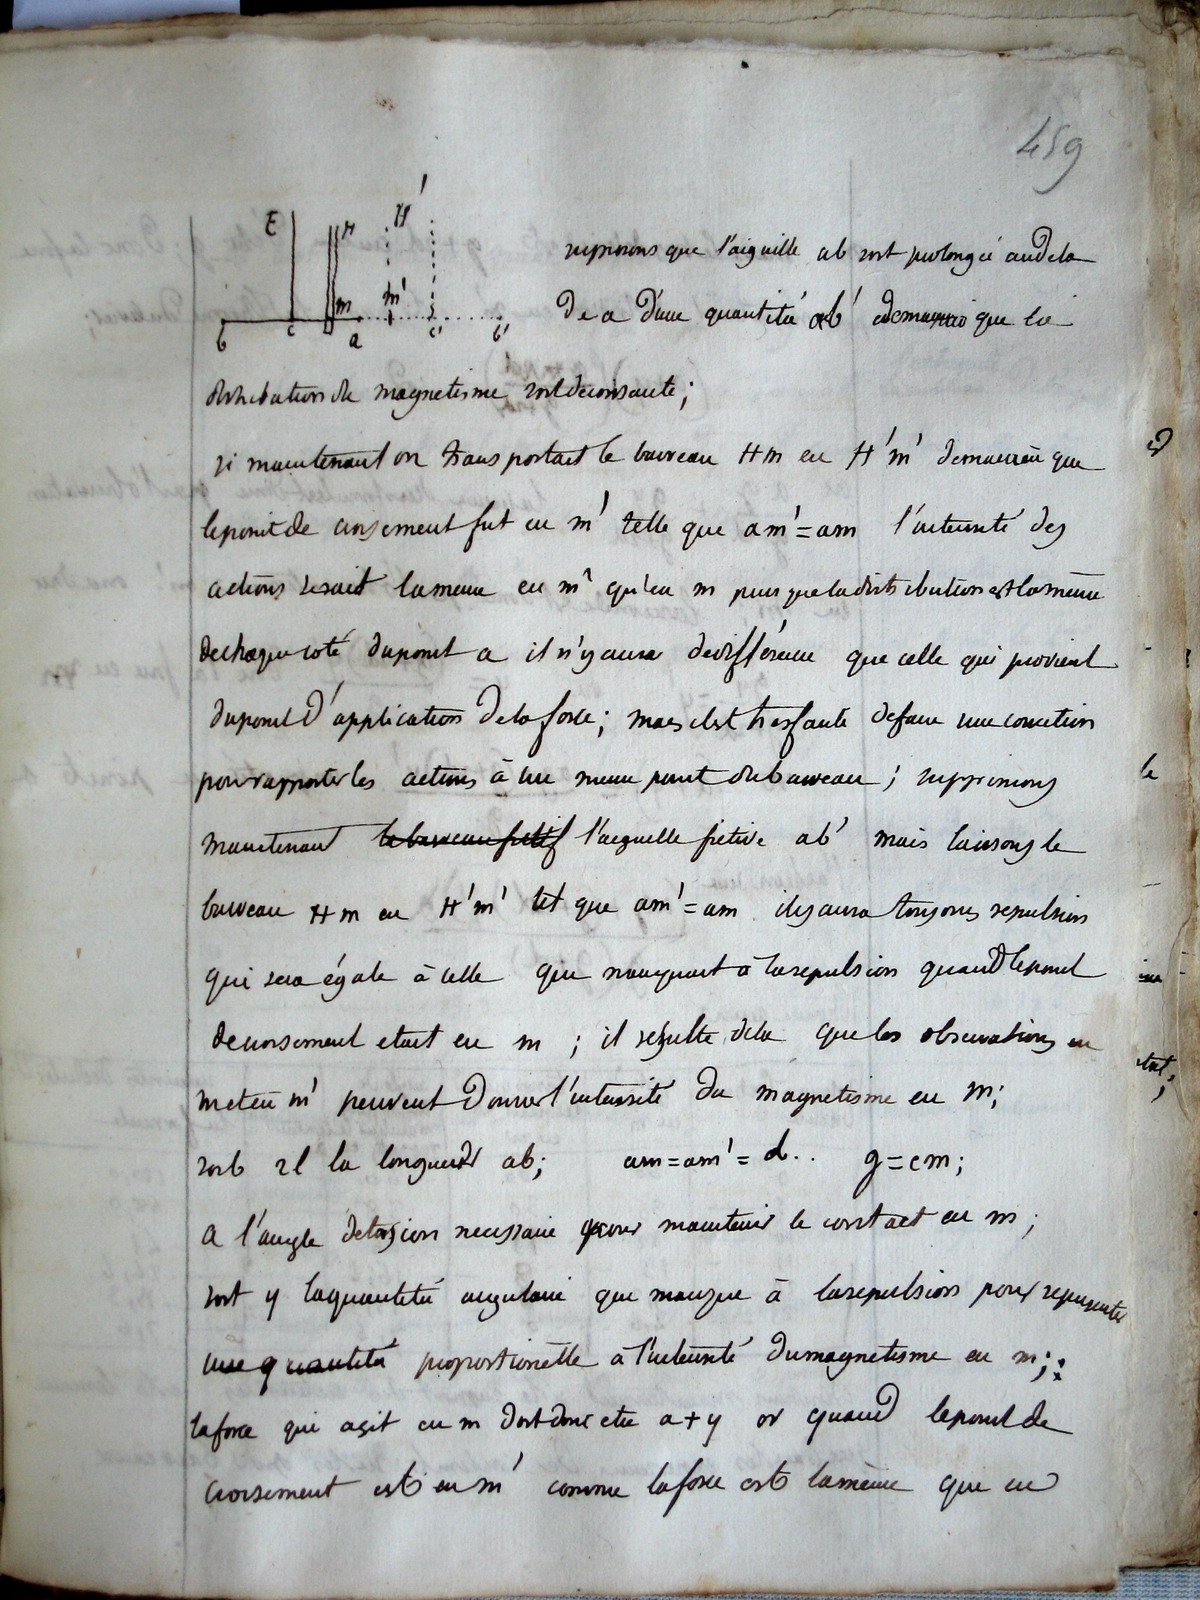 459
E H H'
m m'
b c a c' b'
supposons que l'aiguille ab soit prolongée au dela
De a D'une quantité ab' demaniere que la
distribution de magnetisme soit decroissante;
si maintenant on transportait le barreau Hm en H'm' demaniere que
le point de croisement fut en m' telle que am'=am l'intensité des
actions serait la meme en m' qu'en m puis que la distribution est la même
de chaque coté du point a il n'y aura de différence que celle qui provient
du point D'application De la force; mais il est tres facile de faire une correction
pour rapporter les actions à un meme point du barreau; supprimons
maintenant le barreau fictif l'aiguille fictive ab' mais laissons le
barreau Hm en H'm' tel que am'=am il y aura toujours repulsion
qui sera égale à celle que manquait à la repulsion quand le point
de croisement etait en m ; il resulte dela que les observations en
m' peuvent Donner l'intensité du magnetisme en m;
soit 2l la longueur ab; am=am'=d.. g=cm;
a l'angle de torsion necessaire pour maintenir le contact en m;
soit y la quantité angulaire que manque à la repulsion pour representer
une quantité proportionelle à l'intensité du magnetisme en m;
la force qui agit en m doit donc etre a+y or quand le point de
croisement est en m' comme la force est la même que en